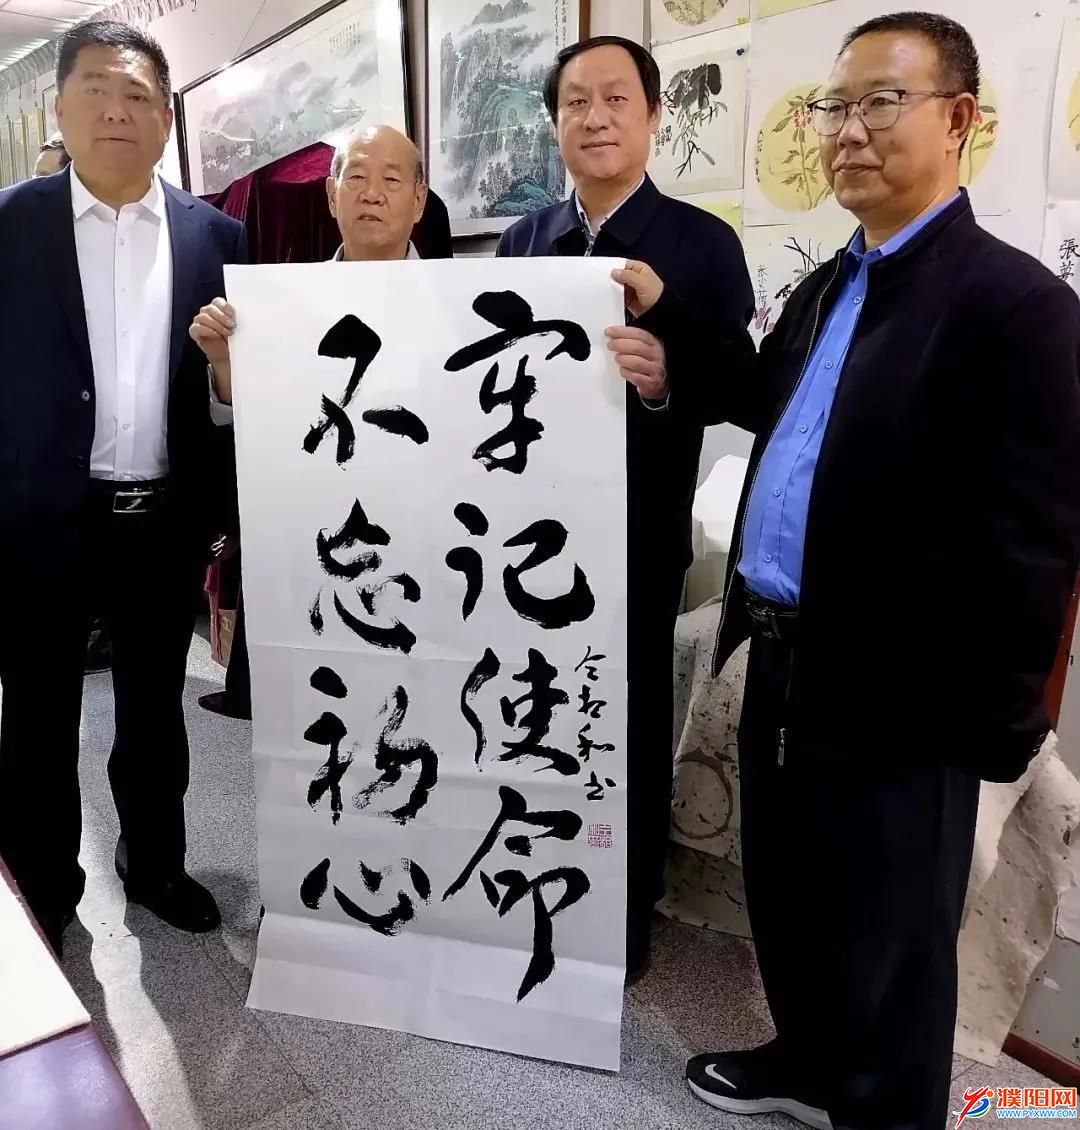 不忘初心
牢记使命
張夢
濮阳网
WWW.PYXWW.COM